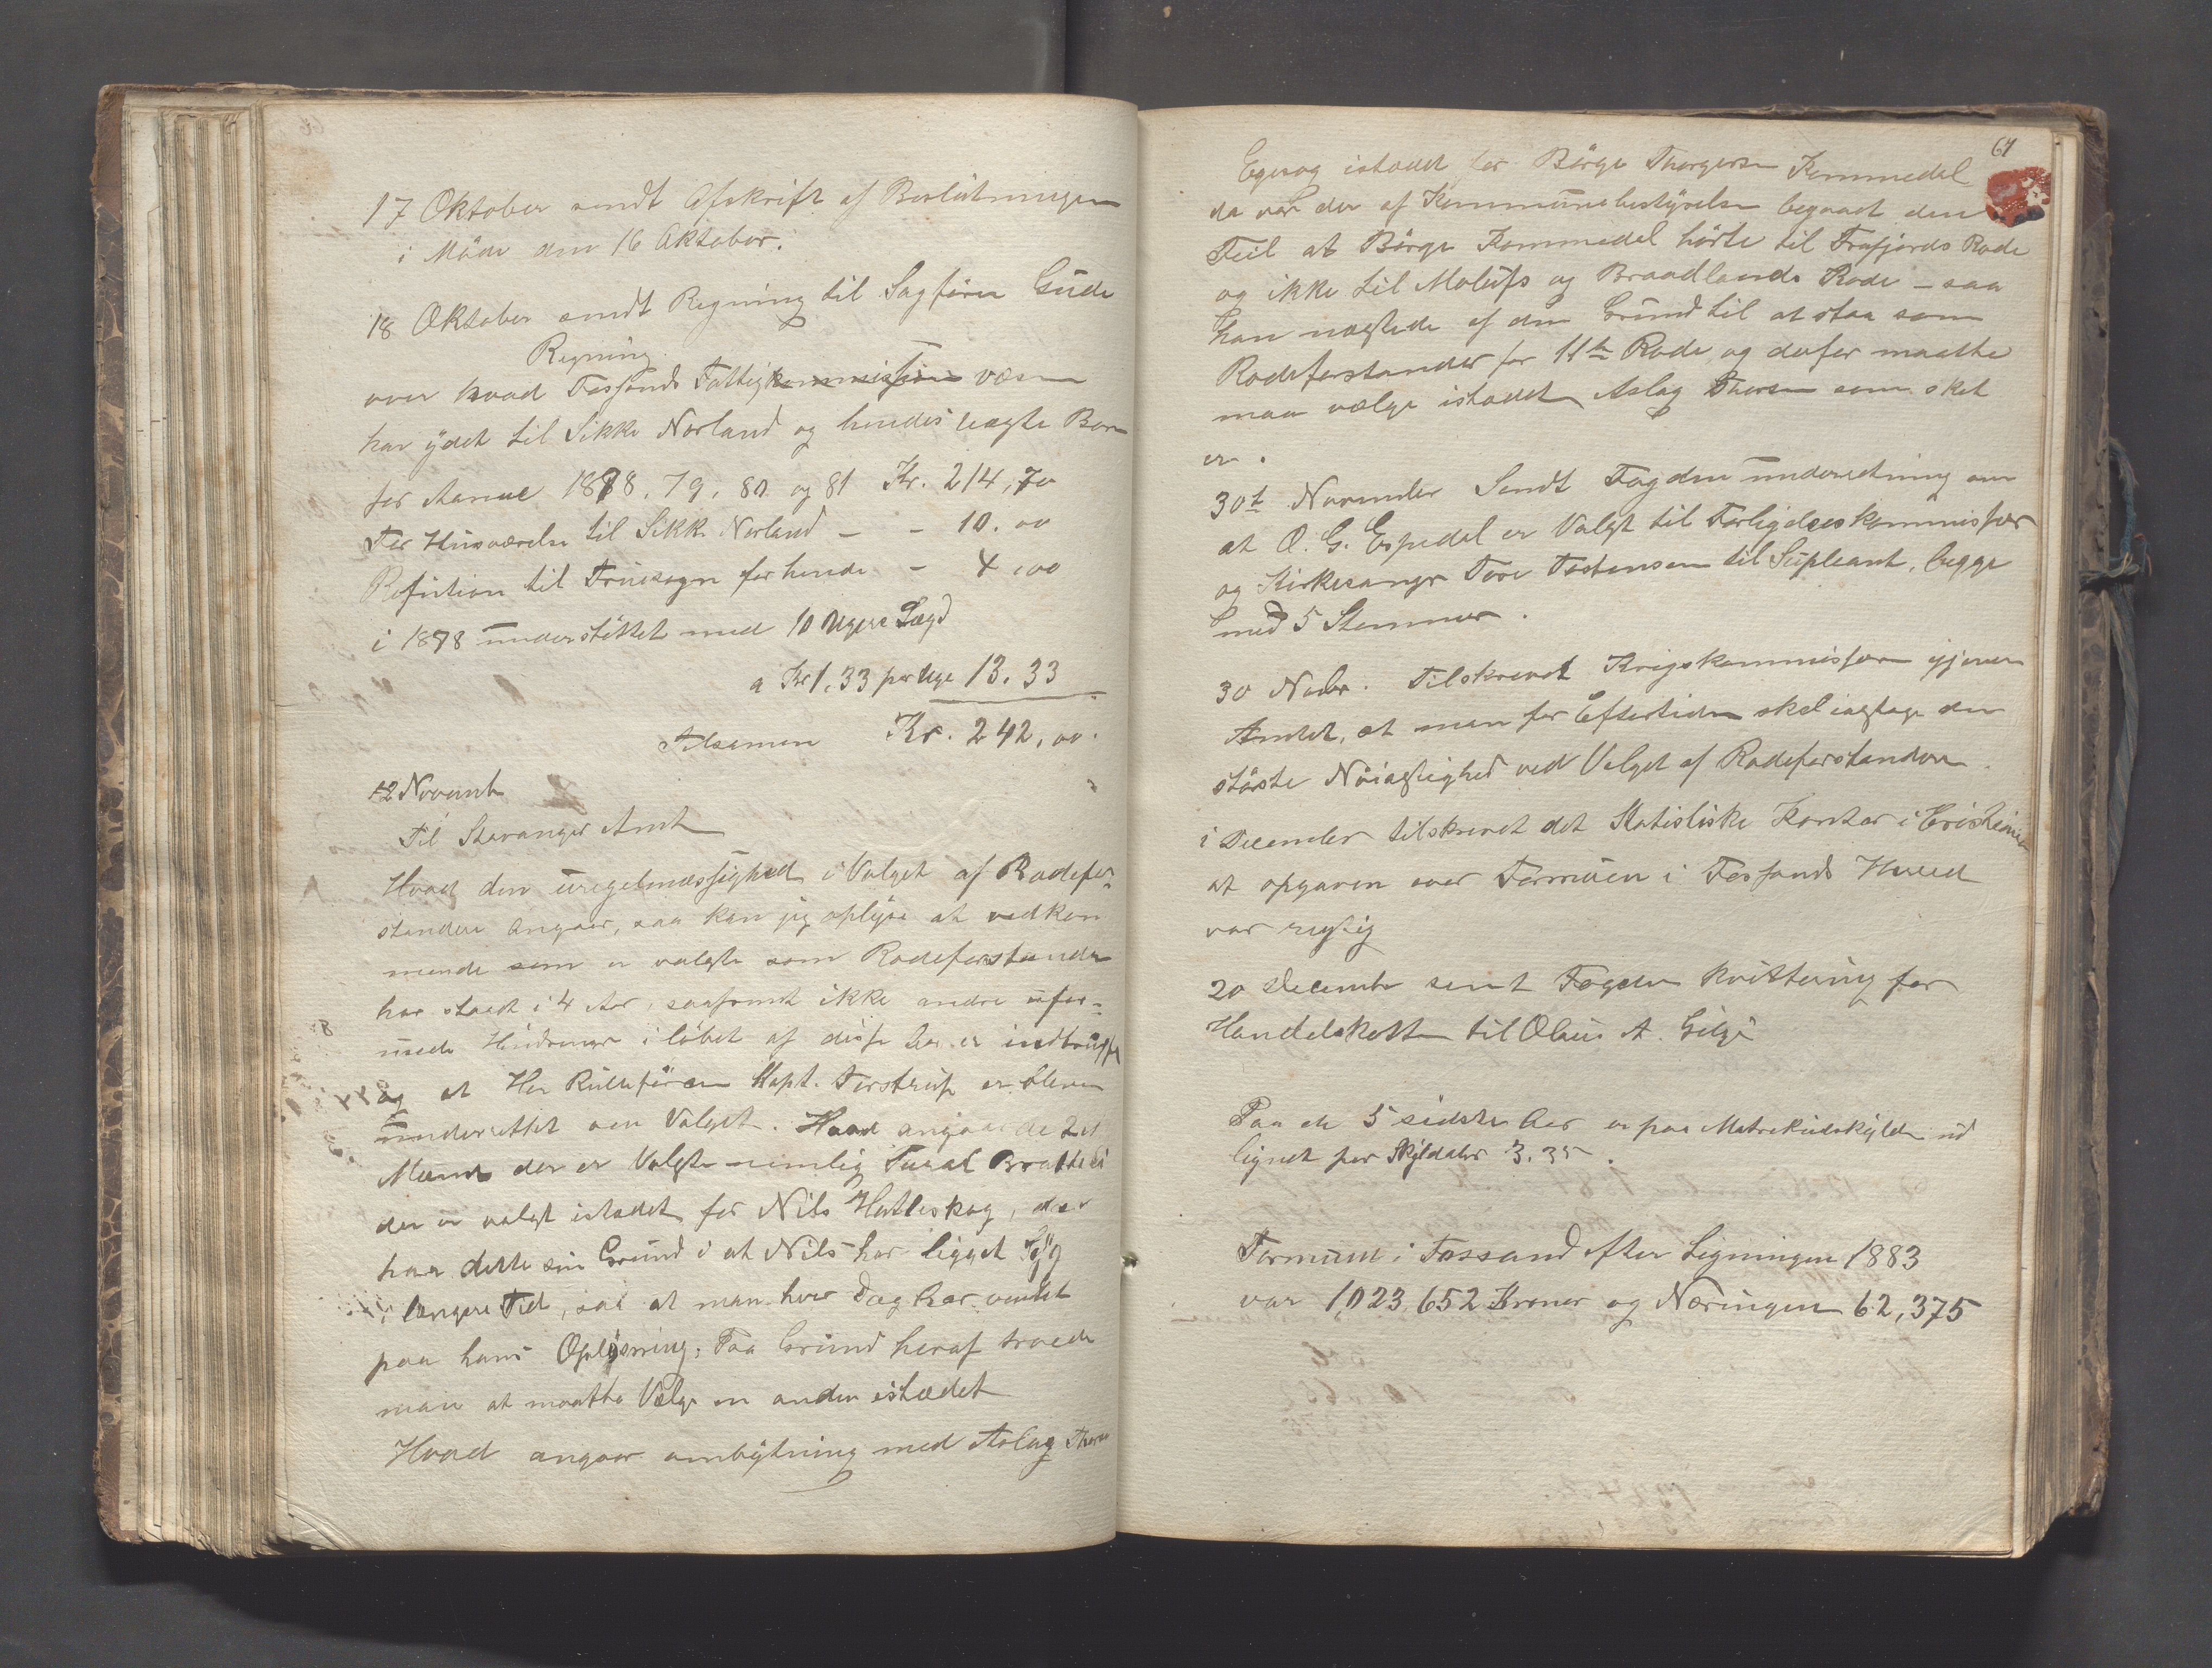 17 Oktober sendt Afskrift af Beslutningen
i Möde den 16 Oktober.
18 Oktober sendt Regning til Sagförer Gude
Regning
over hvad Fossands Fattigkommission væsen
har ydet til Sikke Norland og hendes uægte Barn
for Aarene 1878, 79, 80 og 81 Kr. 214,70
For Husværelse til Sikke Norland - - 10.00
Refution til for hende - 4,00
i 1878 understöttet med 10 Ugers Lægd
a Kr 1.33 per Uge 13.33
Tilsamen Kr. 242,00.
12 Novemb
Til Stavanger Amt
Hvad den uregelmæssighed i Valget af Rodefor-
standere angaar, saa kan jeg oplyse at vedkom
mende som er valgte som Rodeforstander
har staaet i 4 Aar, saafremt ikke andre ufor-
mede Hindringer i löbet af disse Aar er indtruffet
og at Her Rulleförer Kapt. Torstrup er bleven
underrettet om Valget. Hvad angaar de to
Mænd der er Valgte nemlig Bratteli
der er valgt istedet for Nils Hatleskog, da
har dette sin Grund i at Nils har ligget Syg
i længere Tid, saa at man hver Dag har ventet
paa hans Oplösning; Paa Grund heraf troede
man at maatte Vælge en anden istædet
Hvad angaar ombytning med Aslag Thorsen
64
Egeskog istædet for Börge Thorgersen Kommedal
da var der af Kommunebestyrelsen begaaet den
Feil at Börge Kommedal hörte til Frafjords Rode
og ikke til Molaufs og Braadlands Rode - saa
han nægtede af den Grund til at staa som
Rodeforstander for 11te Rode og derfor maatte
man vælge istædet Aslag Thorsen som sket
er.
30t November Sendt Fogden underretning om
at O. G. Espedal er Valgt til Forligelseskommissær
og Kirkesanger Tore Tostensen til Supleant, begge
med 5 Stemmer.
30 Novbr. Tilskrevet Krigskommissæren gjennem
Amtet, at man for Eftertiden skal iagtage den
störste Nöiagtighed ved Valget af Rodeforstandere.
i December tilskrevet det Statistiske Kontor i Cristiania
at opgaven over Formuen i Fossands Hered
var rigtig
20 December sent Fogden kvittering for
Handelskatten til Olaus A. Gilje
Paa de 5 sidste Aar er paa Matrikulskylden ud
lignet per Skylddaler 3.35.
Formuen i Fossand efter Ligningen 1883
var 1,023,652 Kroner og Næringen 62,375